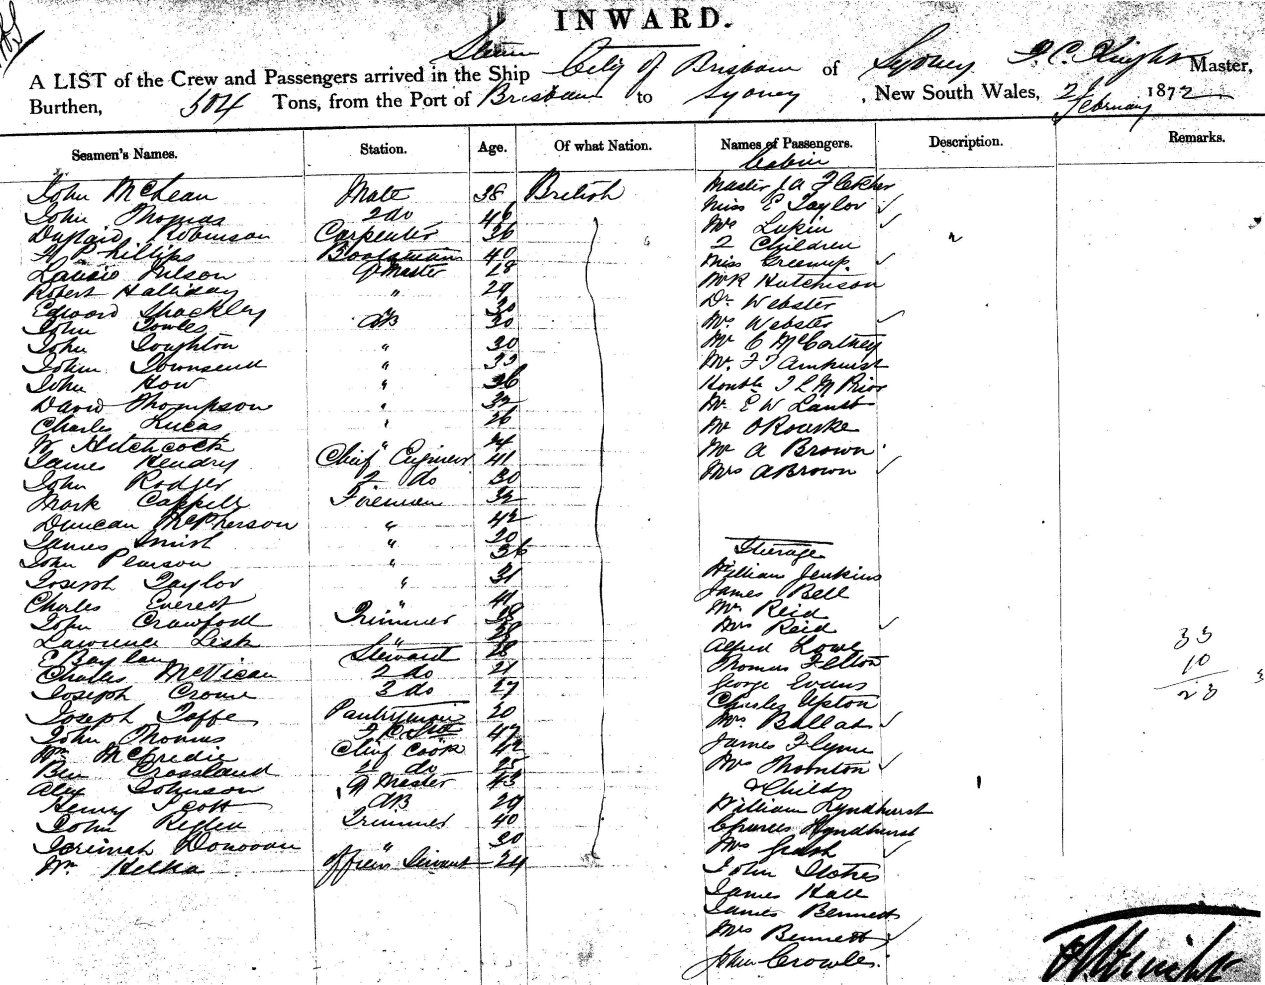 INWARD.
Steam
A LIST of the Crew and Passengers arrived in the Ship City of Brisbane of Sydney Knight Master,
Burthen, 504 Tons, from the Port of Brisbane to Sydney, New South Wales, February 1872
Seamen's Names. Station. Age. Of what Nation. Names of Passengers. Description. Remarks.
Cabin
John McLean Mate 38 British Master Fletcher
John Thomas 2 do 46 Miss E Taylor
Robinson Carpenter 36 Mrs Lukin
Phillips Boatswain 40 2 Children
Nelson Qr Master 28 Miss
Robert Halliday " 29 Mr R Hutchison
Edward Shackley " 30 Dr Webster
John Towles AB 30 Mrs Webster
John Loughton " 30 Mr C McCartney
John Townsend " 33 Mr F T Amhurst
John How " 36 Honble T L M Prior
David Thompson " 32 Mr E W
Charles Lucas " 26 Mr O'Rourke
W Hitchcock " Mr A Brown
James Hendry Chief Engineer 41 Mrs A Brown
John Rodger 2 do 30
Mark Firemen 32
Duncan McPherson " 42
James Smith " 20 Steerage
John Pearson " 36 William Jenkins
Joseph Taylor " 31 James Bell
Charles Everest " 41 Mr Reid
John Crawford Trimmer 38 Mrs Reid
Lawrence Lisk " Alfred Lowe 33
E Steward 28 Thomas Felton 10
Charles McVicar 2 do 21 George Evans 23
Joseph Crowe 3 do 27 Charles Upton
Joseph Taffe Pantryman 20 Mrs
John Thomas 47 James Flynn
Wm McCredie Chief Cook 42 Mrs Thornton
Ben Crossland 2 do 25 & Child
Alex Johnson Qr Master 43 William Lyndhurst
Henry Scott AB 29 Charles Lyndhurst
John Trimmer 40 Mrs
Jeremiah Donovan " 30 John Stokes
Wm Officers Servant 24 James Hall
James Bennett
Mrs Bennett
John Crowles